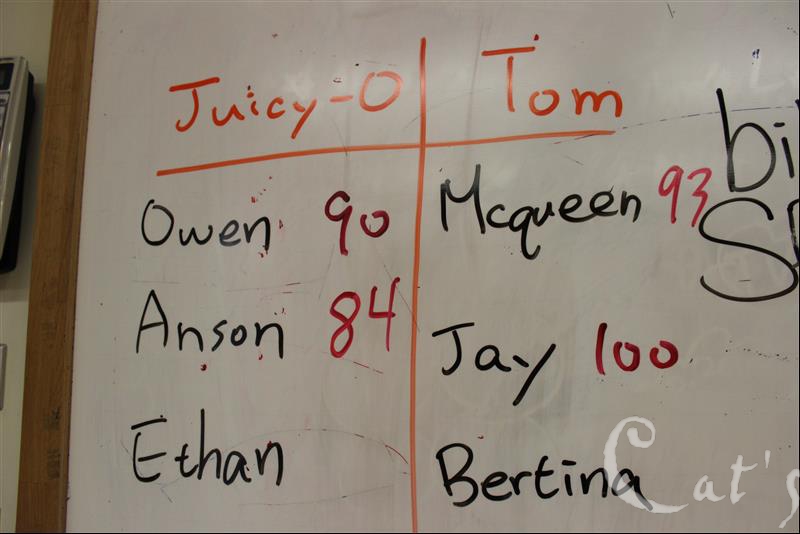 Juicy-O Tom
Owen 90 Mcqueen 93
Anson 84 Jay 100
Ethan Bertina
bi
Cat's